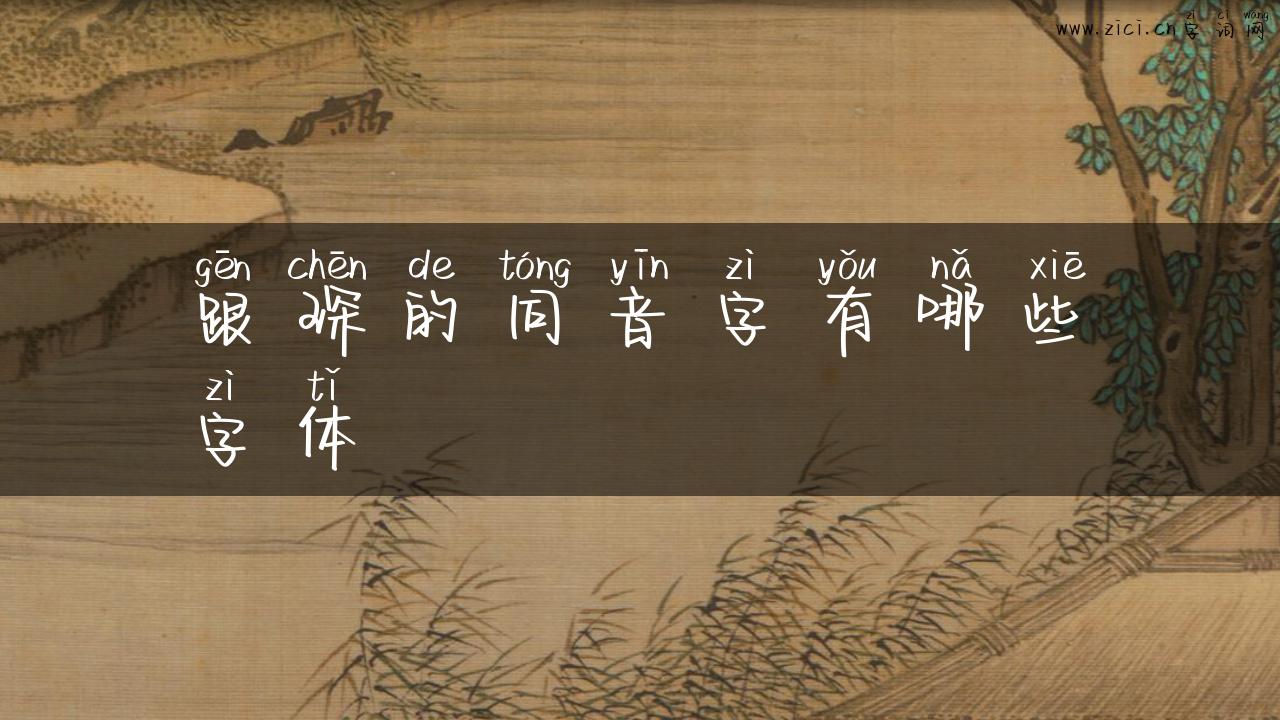 zì cí wǎng
www.zici.cn字词网
gēn chēn de tóng yīn zì yǒu nǎ xiē
跟琛的同音字有哪些
zì tǐ
字体